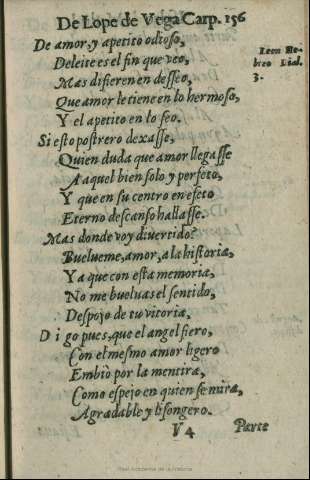 De Lope de Vega Carp. 156
De amor, y apetito odioso,
Leon He-
breo Dial.
3.
Deleite es el fin que veo,
Mas difieren en desseo,
Que amor le tiene en lo hermoso,
Y el apetito en lo feo.
Si esto postrero dexasse,
Quien duda que amor llegasse
A aquel bien solo y perfeto,
Y que en su centro en efeto
Eterno descanso hallasse.
Mas donde voy divertido?
Buelueme, amor, a la historia,
Ya que con esta memoria,
No me bueluas el sentido,
Despojo de tu vitoria,
Digo pues, que el angel fiero,
Con el mesmo amor ligero
Embiò por la mentira,
Como espejo en quien se mira,
Agradable y lisongero.
V 4 Parte
Real Academia de la Historia